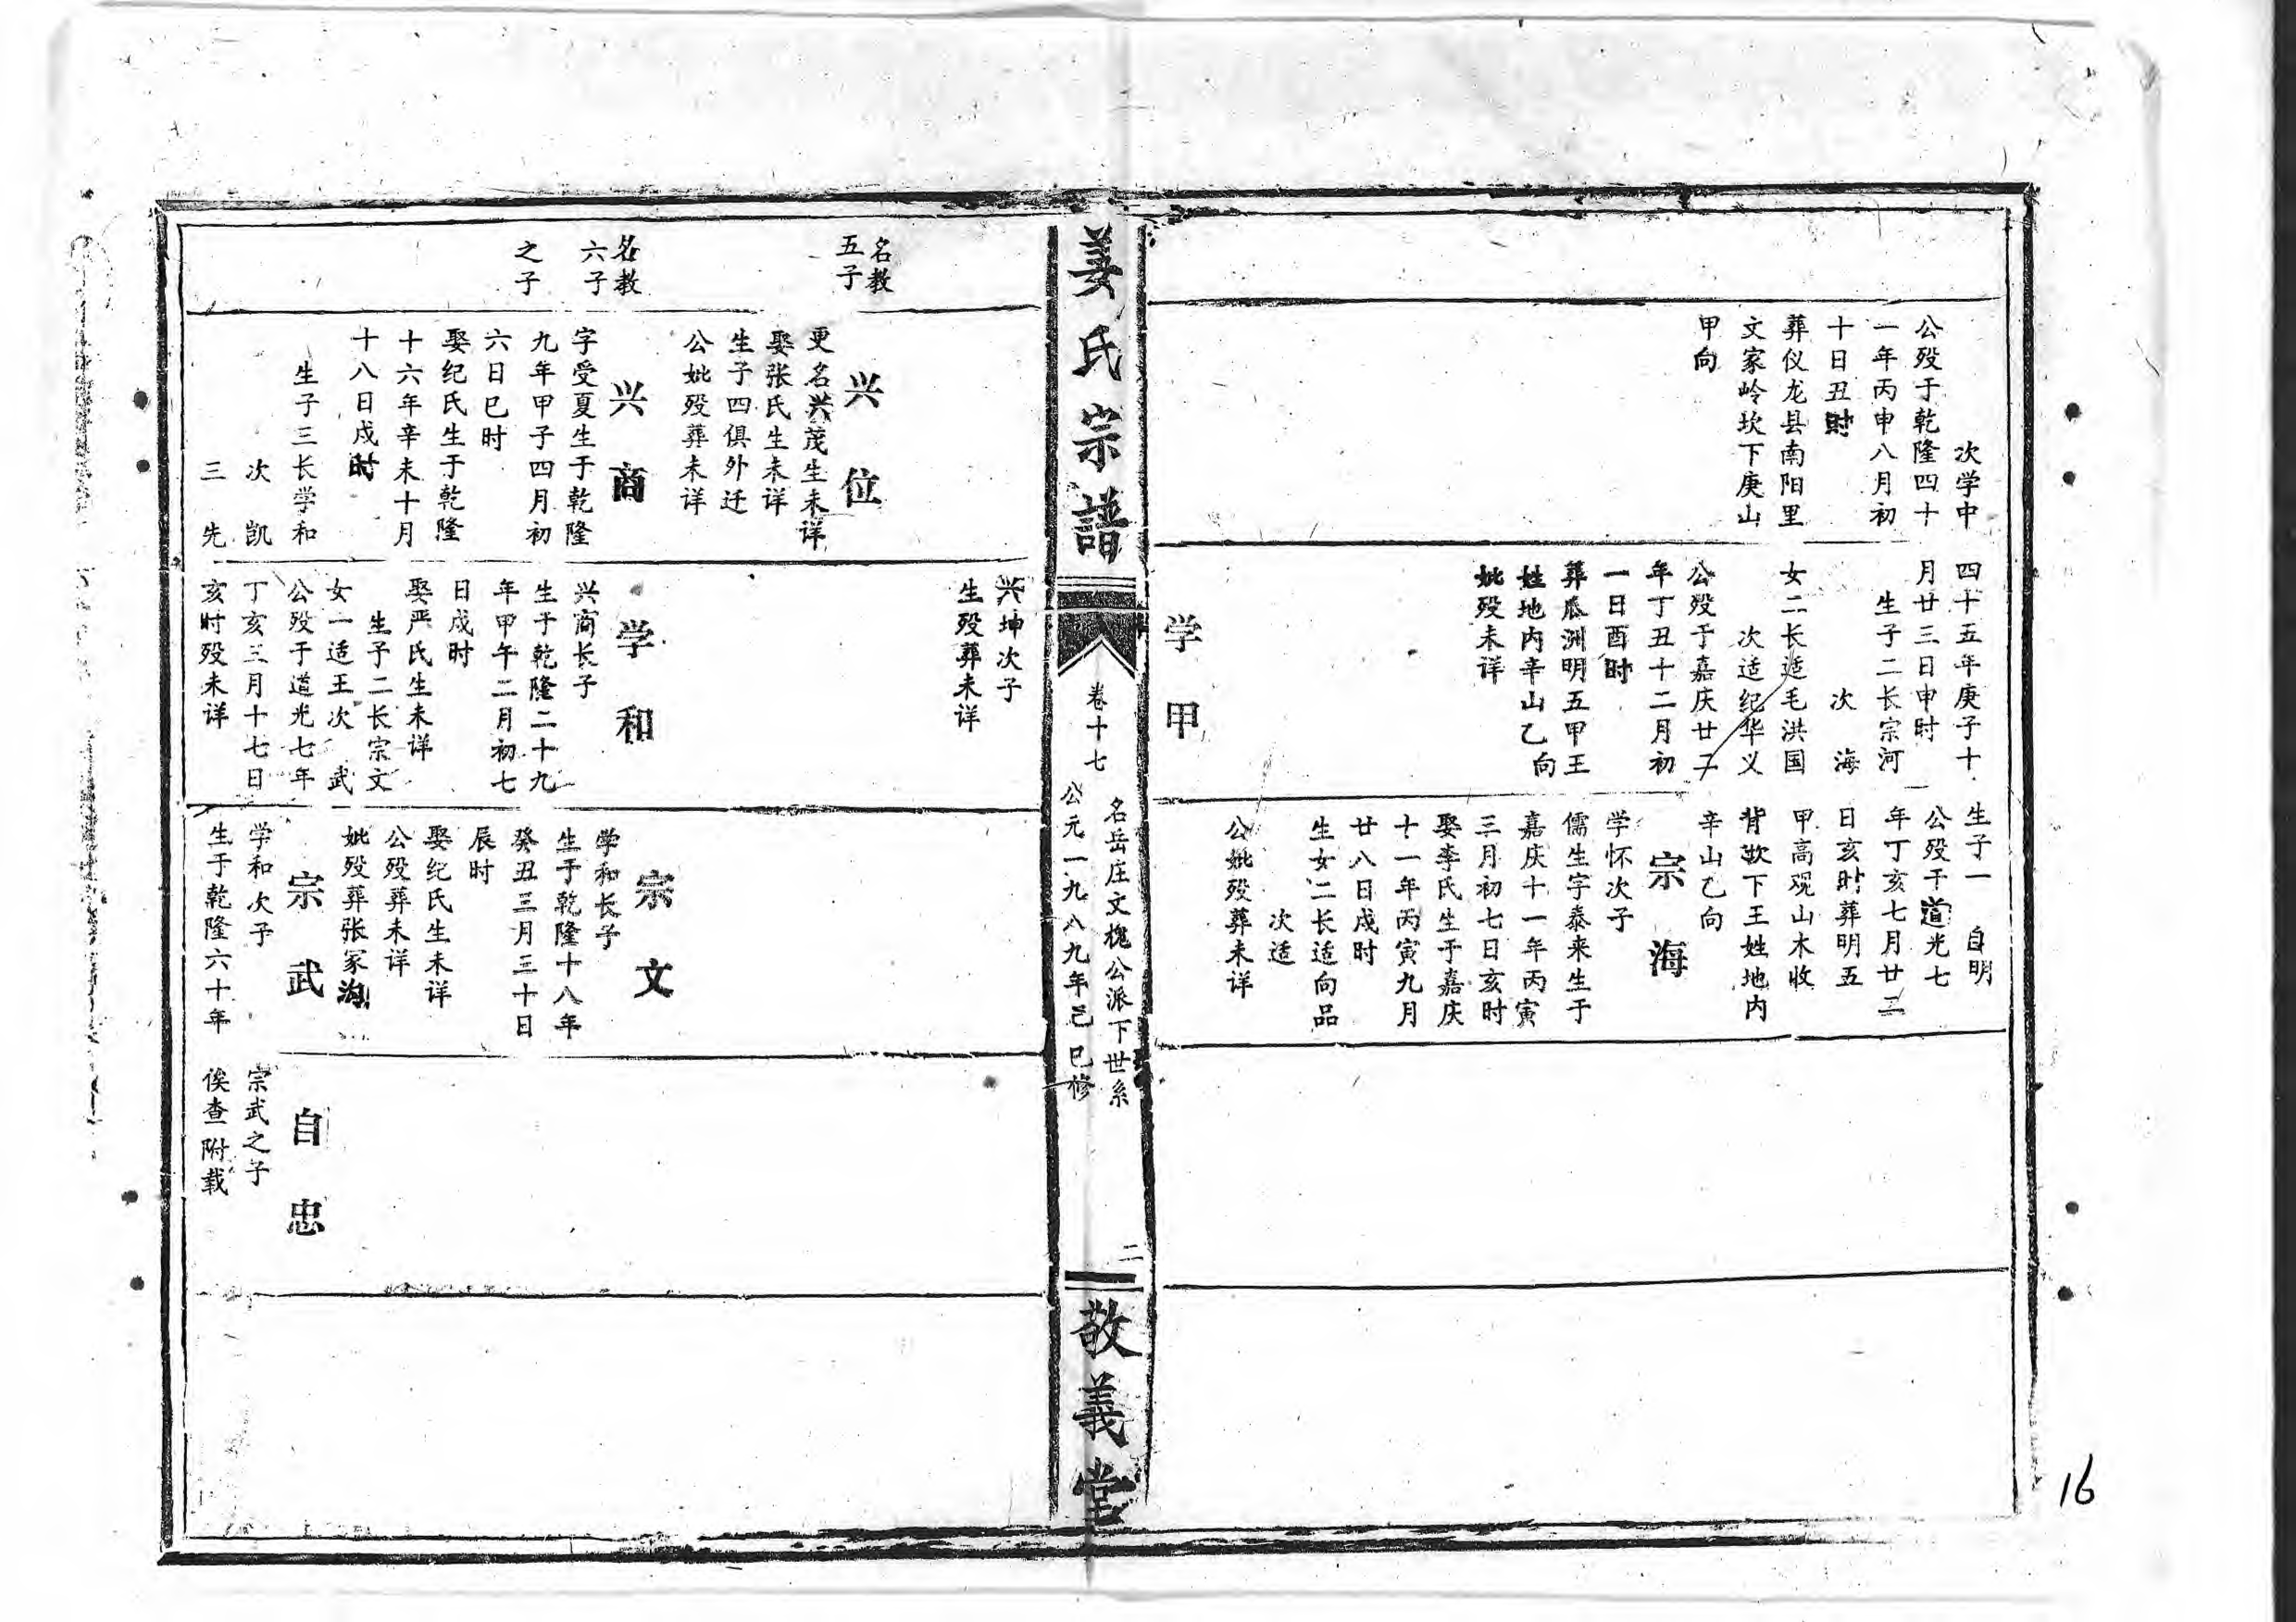 次学中
公殁于乾隆四十
一年丙申八月初
十日丑时
葬仪龙县南阳里
文家岭坎下庚山
甲向
四十五年庚子十
月廿三日申时
生子二长宗河
次海
女二长适毛洪国
次适纪华义
公殁于嘉庆廿二
年丁丑十二月初
一日酉时
葬瓜洲明五甲王
姓地内辛山乙向
妣殁未详
学甲
生子一自明
公殁于道光七
年丁亥七月廿二
日亥时葬明五
甲高观山木收
背欹下王姓地内
辛山乙向
宗海
学怀次子
儒生字泰来生于
嘉庆十一年丙寅
三月初七日亥时
娶李氏生于嘉庆
十一年丙寅九月
廿八日戌时
生女二长适向品
次适
公妣殁葬未详
姜氏宗譜
卷十七
名岳庄文槐公派下世系
公元一九八九年己巳修
二
敬義堂
名教
五子
名教
六子
之子
兴位
更名兴茂生未详
娶张氏生未详
生子四俱外迁
公妣殁葬未详
兴商
字受夏生于乾隆
九年甲子四月初
六日巳时
娶纪氏生于乾隆
十六年辛未十月
十八日戌时
生子三长学和
次凯
三先
兴坤次子
生殁葬未详
学和
兴商长子
生于乾隆二十九
年甲午二月初七
日戌时
娶严氏生未详
生子二长宗文
女一适王次武
公殁于道光七年
丁亥三月十七日
亥时殁未详
宗文
学和长子
生于乾隆十八年
癸丑三月三十日
辰时
娶纪氏生未详
公殁葬未详
妣殁葬张家沟
宗武
学和次子
生于乾隆六十年
自忠
宗武之子
俟查附载
16